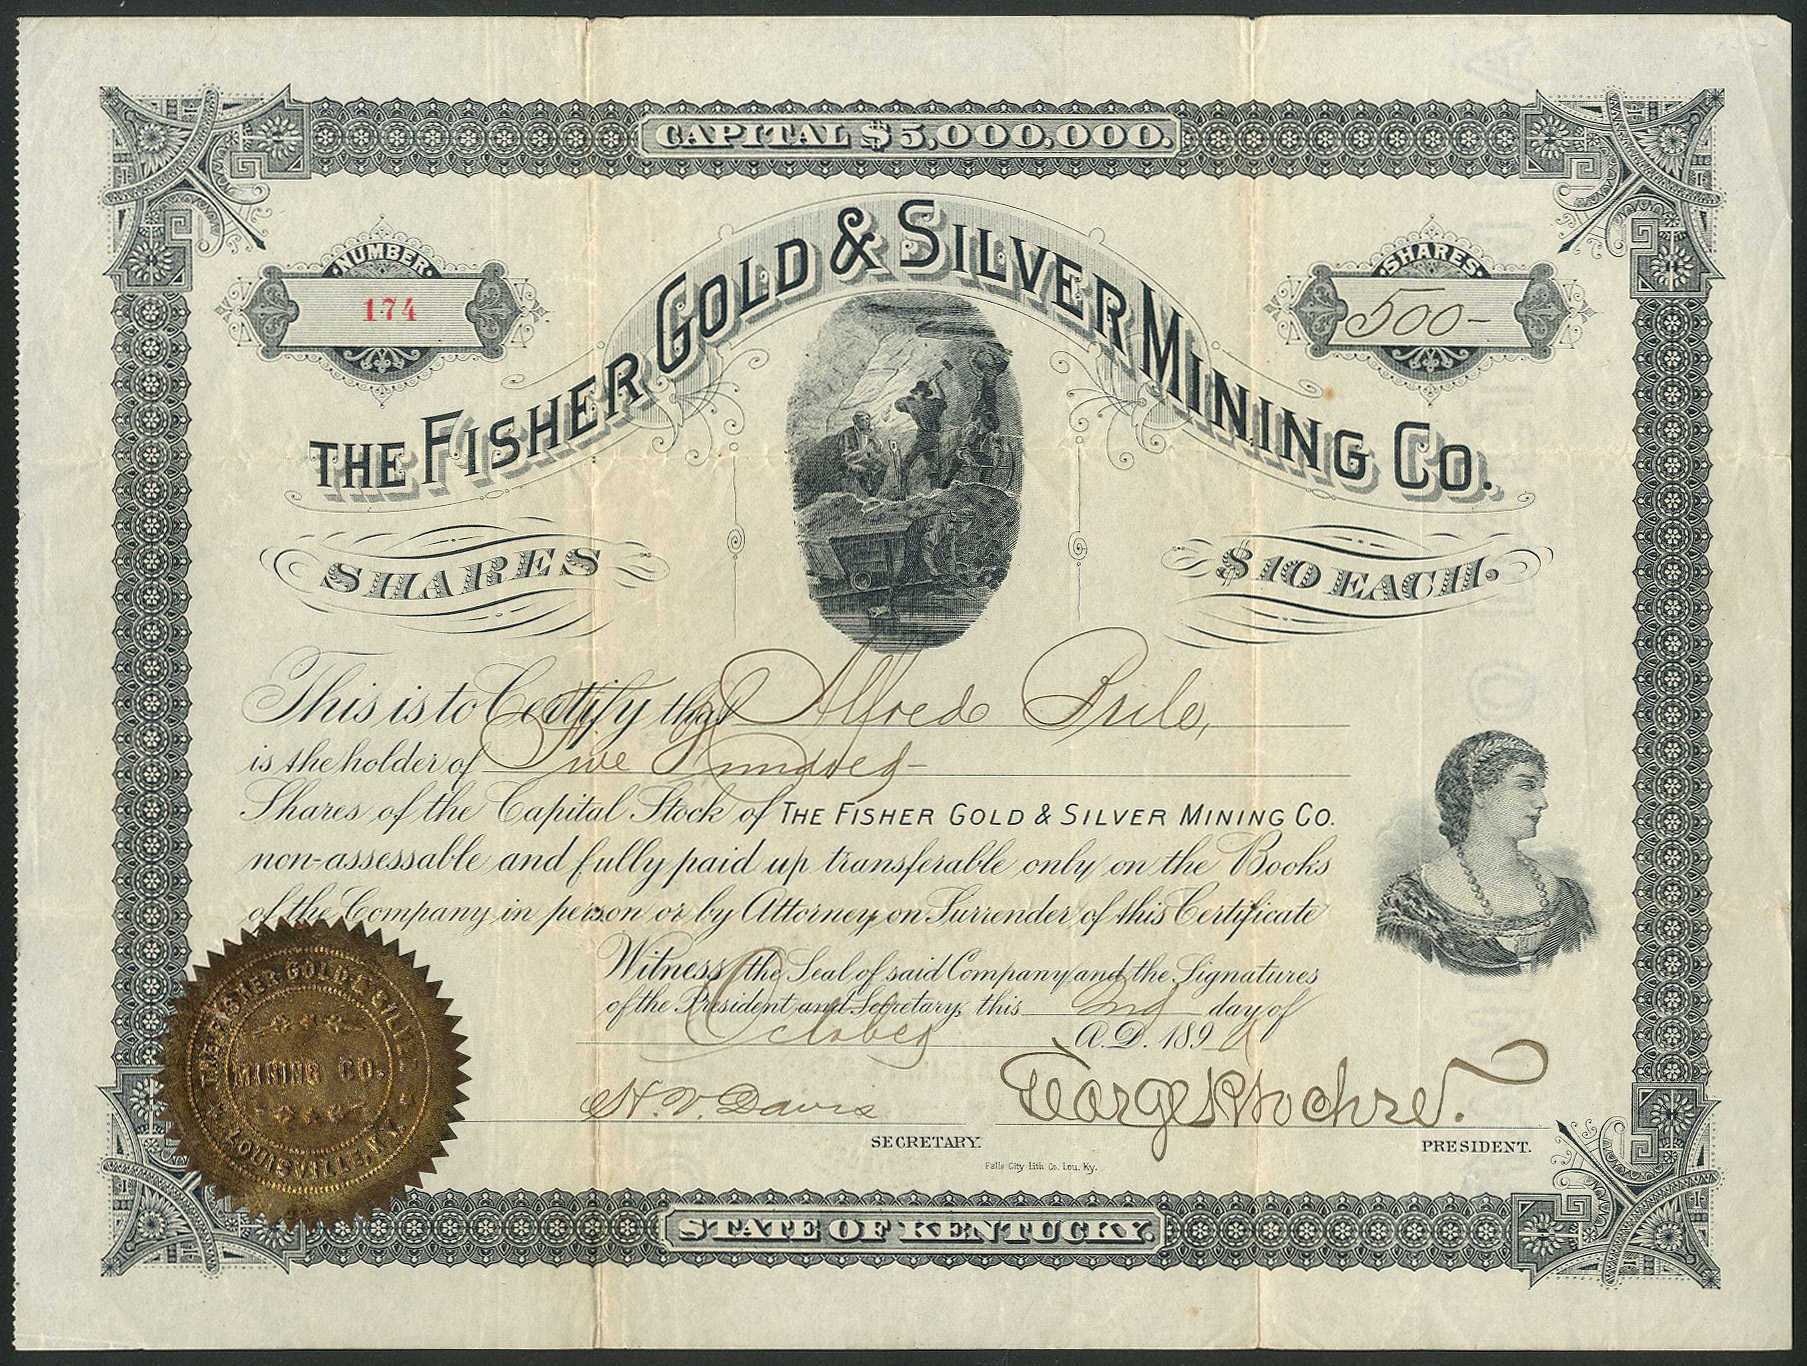 CAPITAL $5,000,000.
NUMBER
174
SHARES
500-
THE FISHER GOLD & SILVER MINING CO.
SHARES $10 EACH.
This is to Certify that Alfred Prile,
is the holder of Five Hundred-
Shares of the Capital Stock of THE FISHER GOLD & SILVER MINING CO.
non-assessable and fully paid up transferable only on the Books
of the Company in person or by Attorney on Surrender of this Certificate
Witness the Seal of said Company and the Signatures
of the President and Secretary, this 2nd day of
October A.D. 189
H. V. Davis George
SECRETARY. PRESIDENT.
Falls City Lith Co. Lou. Ky.
THE FISHER GOLD & SILVER
MINING CO.
LOUISVILLE, KY.
STATE OF KENTUCKY.